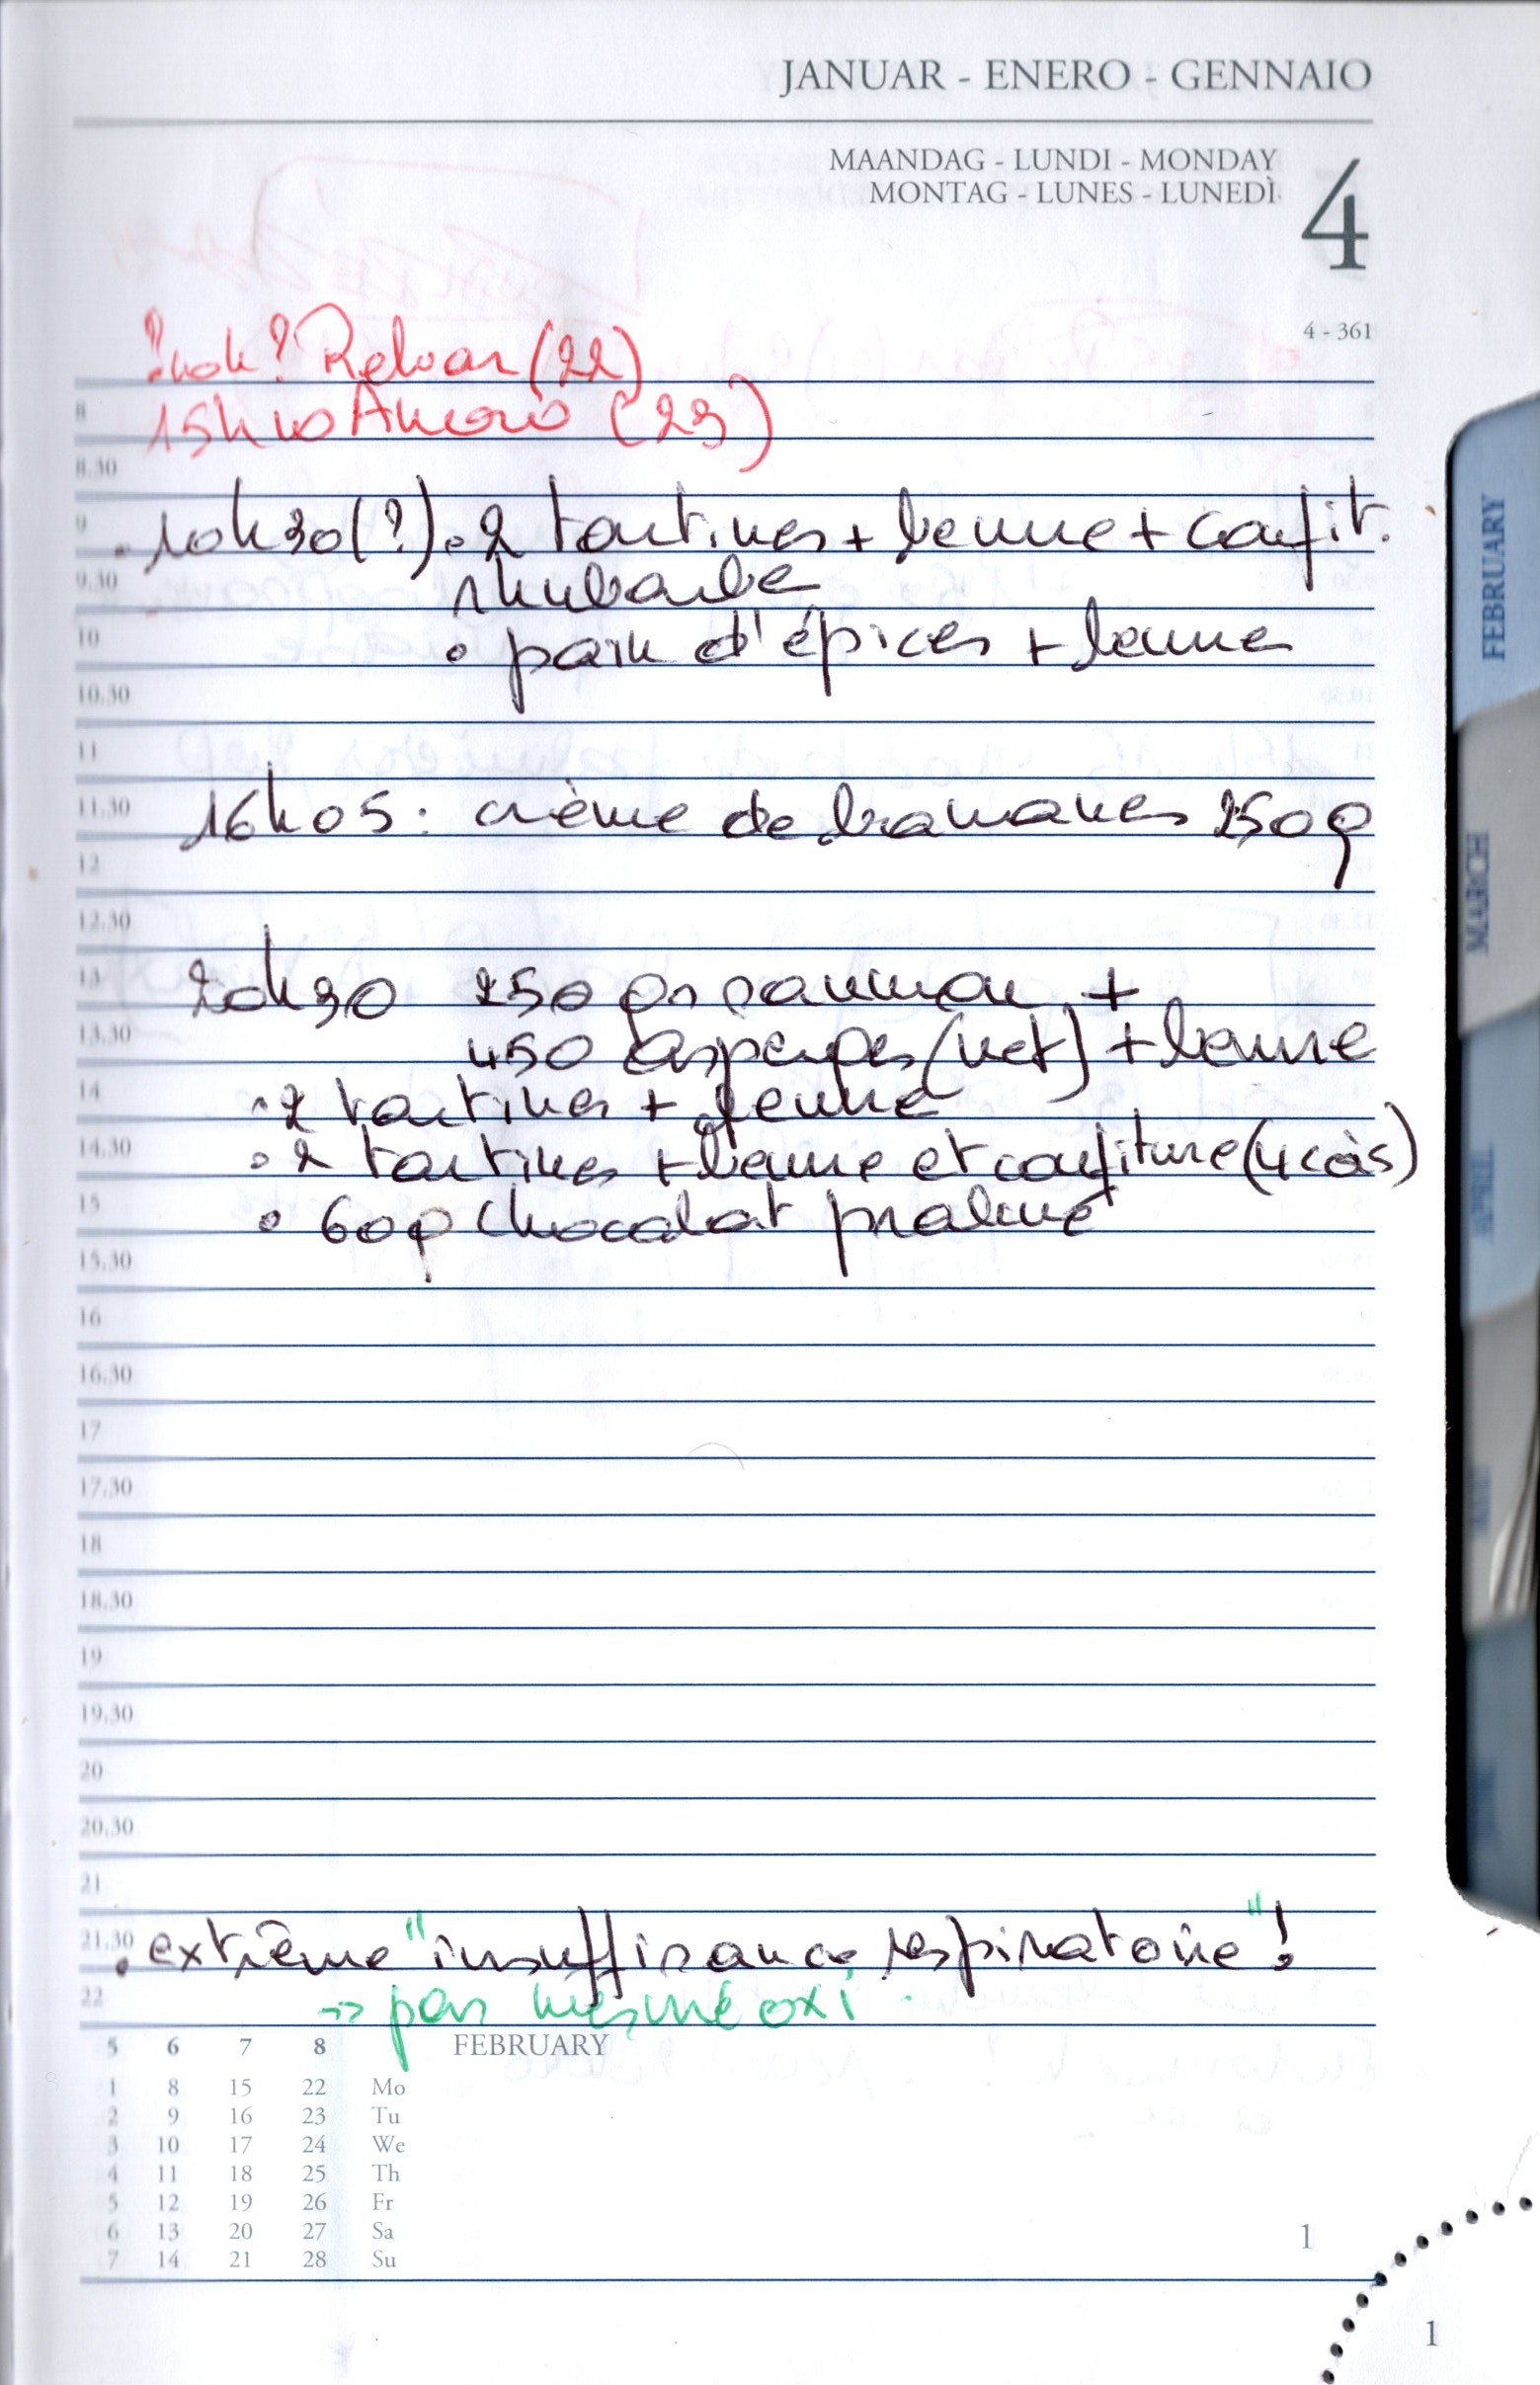 JANUAR - ENERO - GENNAIO
MAANDAG - LUNDI - MONDAY
MONTAG - LUNES - LUNEDÌ
4
4 - 361
? Relvar (22)
8 15h10 Anoro (23)
8.30
9 . 10h30(?) . 2 tartines + beurre + confit.
9.30 rhubarbe
10 • pain d'épices + beurre
10.30
11
11.30 16h05 : crème de bananes 250g
12
12.30
13 20h30 250 grs saumon +
13.30 450 asperges (net) + beurre
14 • 2 tartines + beurre
14.30 • 2 tartines + beurre et confiture (4 càs)
15 • 60g chocolat praliné
15.30
16
16.30
17
17.30
18
18.30
19
19.30
20
20.30
21
21.30 . extrême "insuffisance respiratoire" !
22 → pas mesuré oxi.
5 6 7 8 FEBRUARY
1 8 15 22 Mo
2 9 16 23 Tu
3 10 17 24 We
4 11 18 25 Th
5 12 19 26 Fr
6 13 20 27 Sa
7 14 21 28 Su
1
1
FEBRUARY
MARCH
APRIL